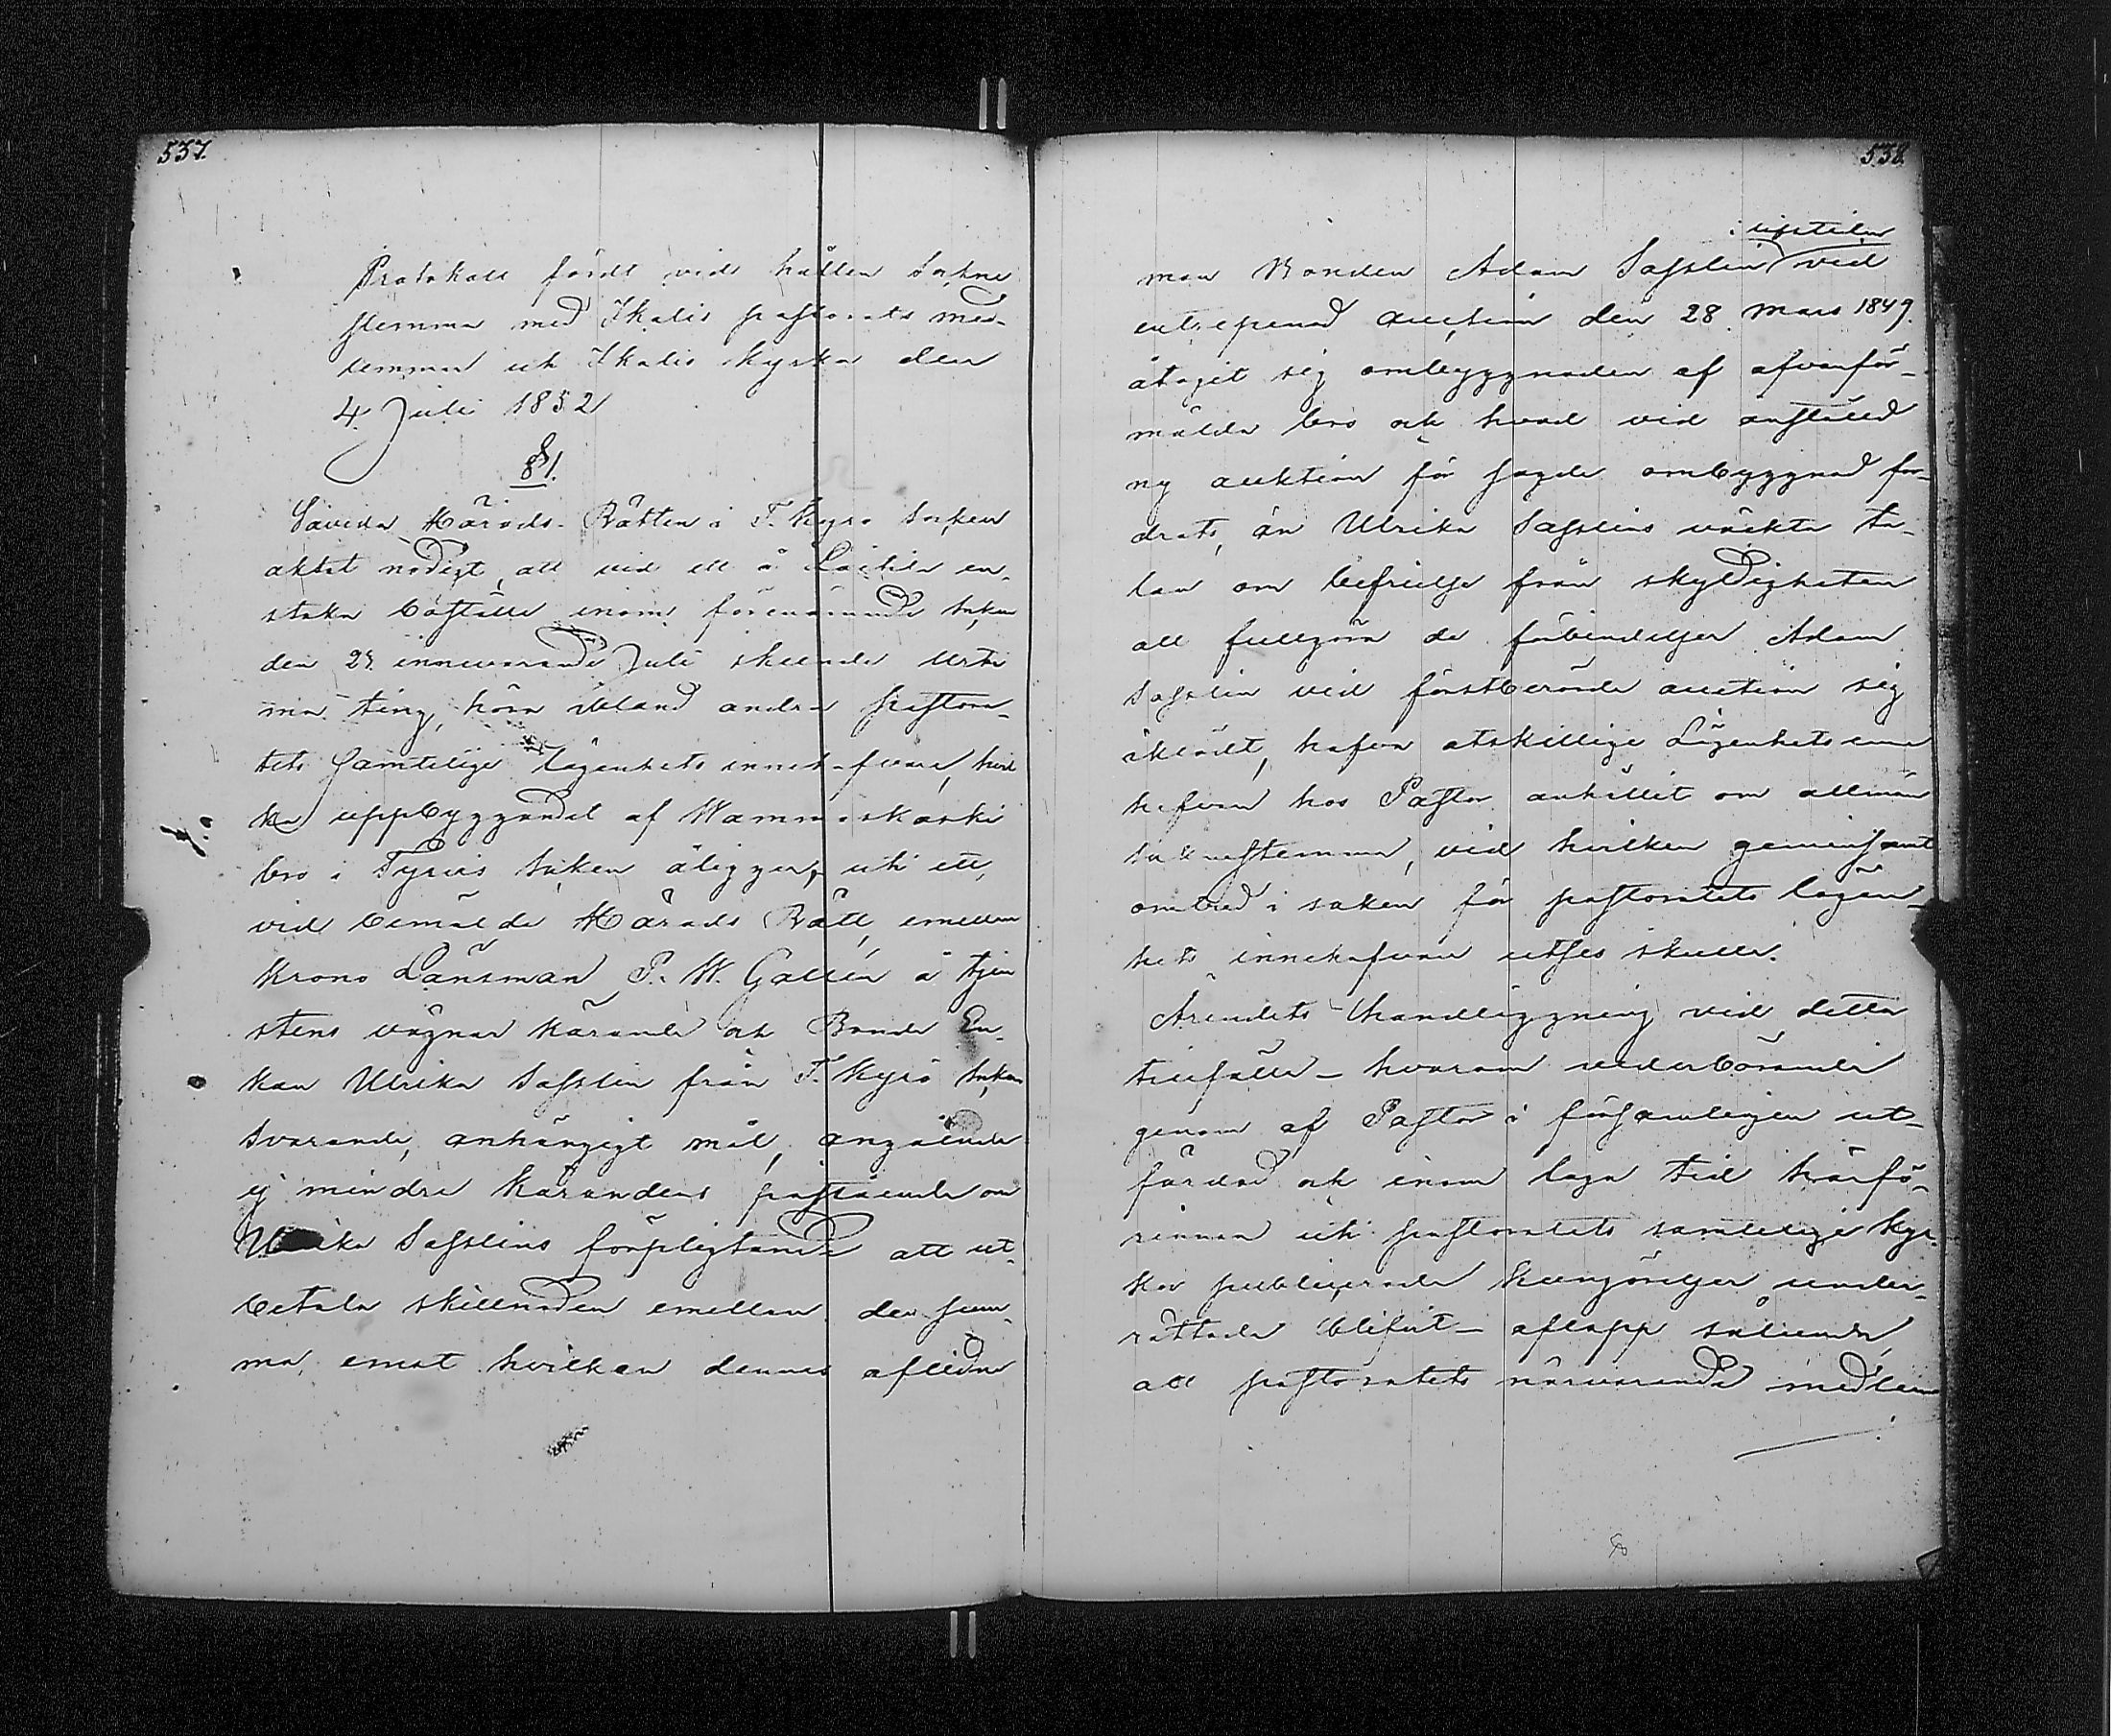 537.
Protokoll fördt vid hållen Sokne
stemma med Ikalis pastorats med-
lemmar uti Ikalis kyrka den
4 Juli 1852
§ 1.
Såvida Härads-Rätten i T. Kyro socken
aktat nödigt, att vid ett å Laitila en-
staka boställe inom förenämnde soken
den 27 innevarande Juli skeende urti-
ma ting, höra ibland andra pastora-
tets samtelige lägenhets innehafvare, hvil
ka uppbyggandet af Hammaskoski
bro i Tyrvis soken åligger, uti ett,
vid bemälde Härads Rätt, emellan
Krono Länsman P. W. Gallén å tjen
stens vägnar kärande och Bonde En-
kan Ulrika Sasslin från T. Kyrö soken
svarande, anhängigt mål, angående
ej mindre kärandens påstående om
Ulrika Sasslins förpligtande att ut-
betala skillnaden emellan den sum-
ma, emot hvilken dennes aflidne
538.
man Bonden Adam Sasslin vid
: upstiden
entrepenad auction den 28 Mars 1849.
åtagit sig ombyggnaden af ofvanför-
mälda bro och hvad vid anstäld
ny auktion för sagde ombyggnad for-
drats, än Ulrika Sasslins väckta ta-
lan om befrielse från skyldigheten
att fullgöra de förbindelser Adam
Sasslin vid förstberörde auction sig
iklädt, hafva åtskillige Lägenhets inne
hafvare hos Pastor anhållit om allmän
soknestemma, vid hvilken gemensamt
ombud i saken för pastoratets lägen-
hets innehafvare utses skulle.
Ärendets handläggning vid detta
tillfälle – hvarom vederbörande
genom af Pastor i församlingen ut-
färdad och inom laga tid härfö-
rinnan uti pastoratets samtelige kyr-
kor publicerade kungörelser under-
rättade blifvit – aflopp sålunda,
att pastoratets närvarande medlem